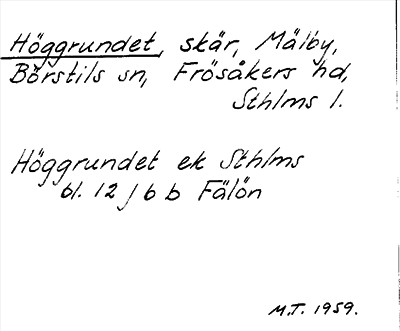 Höggrundet, skär, Mälby,
Börstils sn, Frösåkers hd,
Sthlms l.
Höggrundet ek Sthlms
bl. 12 j 6 b Fälön
M.T. 1959.